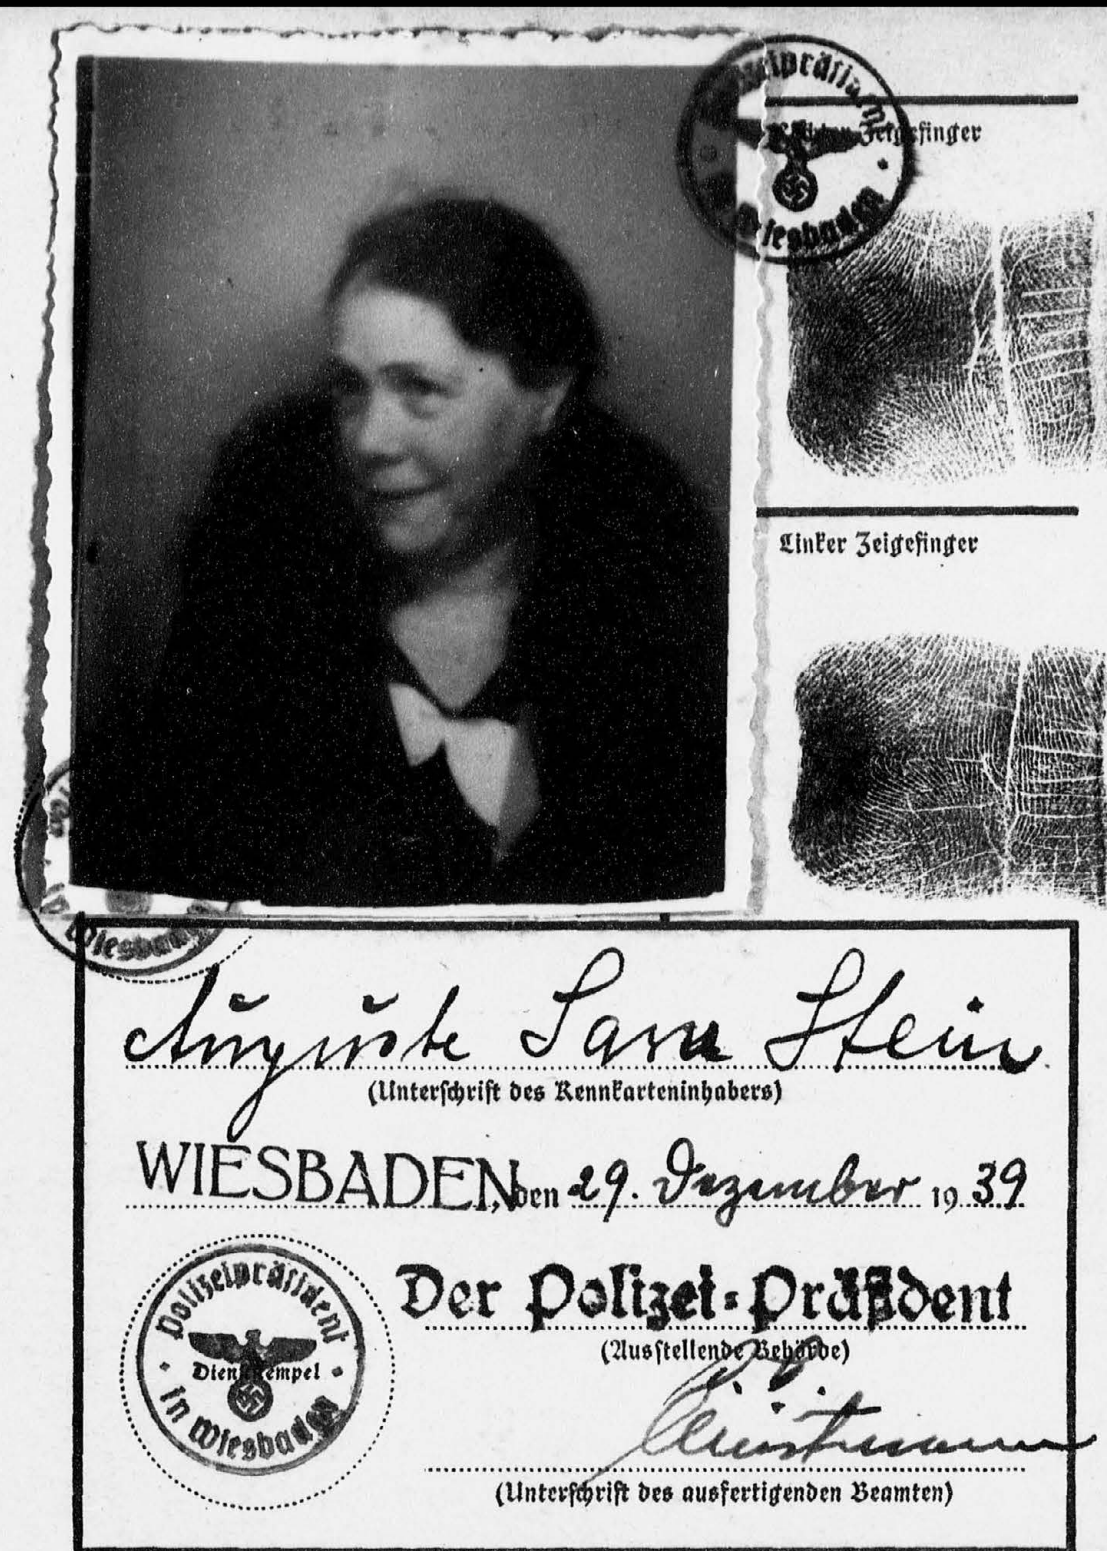 Polizeipräsident
in Wiesbaden
Rechter Zeigefinger
Linker Zeigefinger
Wiesbaden
Auguste Sara Stein
(Unterschrift des Kennkarteninhabers)
WIESBADEN, den 29. Dezember 1939
Der Polizei-Präsident
(Ausstellende Behörde)
Polizeipräsident
Dienststempel
in Wiesbaden
(Unterschrift des ausfertigenden Beamten)